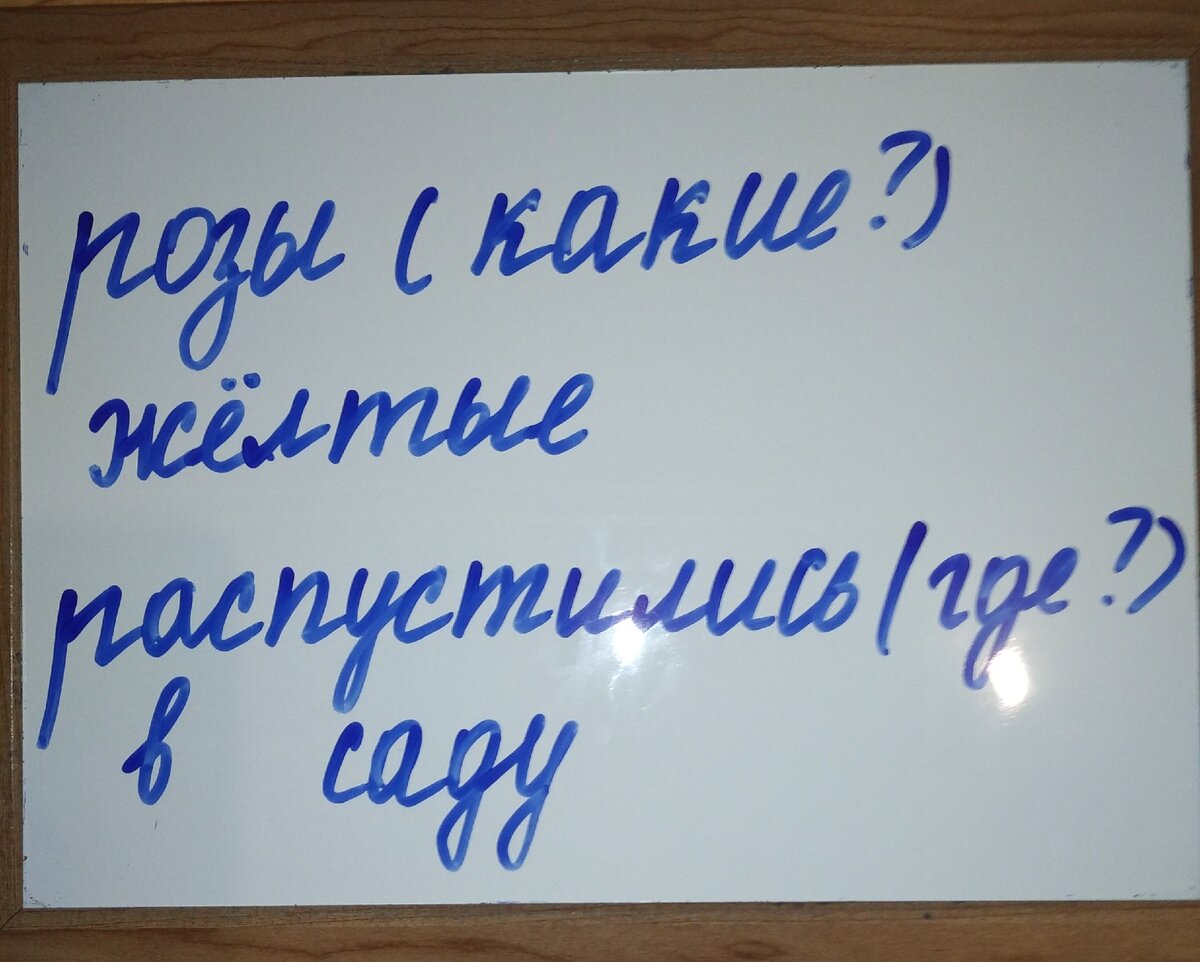 розы (какие?)
жёлтые
распустились (где?)
в саду